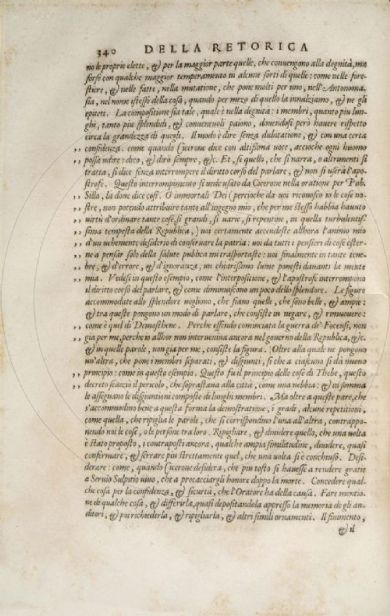 340 DELLA RETORICA
no le proprie elette, & per la maggior parte quelle, che convengano alla degnità, ma
forse con qualche maggior temperamento in alcune sorti di quelle: come nelle fore-
stiere, & nelle fatte, nella mutatione, che pone molti per uno, nell'Antonoma-
sia, nel nome istesso della cosa, quando per mezo di quello la innalziamo, & ne gli
epiteti. La compositione sia tale, quale è nella degnità: i membri, quanto piu lun-
ghi, tanto piu splendidi, & convenevoli paiono, dovendosi però havere rispetto
circa la grandezza di questi. Il modo è dire senza dubitatione, & con una certa
,, confidenza. come quando Cicerone dice con altissima voce, accioche ogni huomo
,, possa udire: dico, & dirò sempre, &c. Et, se quello, che si narra, o altrimenti si
tratta, si dice senza interrompere il diritto corso del parlare, & non si userà l'apo-
strofe. Questo interrompimento si vede usato da Cicerone nella oratione per Pub.
,, Silla, la donde dice così. O immortali Dei (percioche da voi riconosco io le cose no-
,, stre, non potendo attribuire tanto all'ingegno mio, che per me stesso habbia havuto
,, virtù d'ordinare tante cose, sì grandi, sì varie, sì repentine, in quella turbulentis-
,, sima tempesta della Republica) voi certamente accendeste allhora l'animo mio
,, d'un vehemente desiderio di conservare la patria: voi da tutti i pensieri di cose ester-
,, ne a pensar solo della salute publica mi trasportaste: voi finalmente in tante tene-
,, bre, & d'errore, & d'ignoranza, un chiarissimo lume poneste davanti la mente
,, mia. Vedesi in questo esempio, come l'interpositione, & l'apostrofe interrompono
il diritto corso del parlare, & come diminuiscono un poco dello splendore. Le figure
accommodate allo splendore vogliono, che siano quelle, che sono belle, & ampie:
& tra queste pongono un modo di parlare, che consiste in negare, & rimuovere:
,, come è quel di Demosthene. Perche essendo cominciata la guerra de' Focensi, non
,, gia per me, perche io allhora non interveniva ancora nel governo della Republica, &c.
& in quelle parole, non gia per me, consiste la figura. Oltre alla quale ne pongono
un'altra, che pone i membri separati, & disgiunti, sì che a ciascuno si dà nuovo
,, principio: come in questo esempio. Questo fu il principio delle cose di Thebe, questo
,, decreto scacciò il pericolo, che soprastava alla città, come una nebbia: & in somma
le assegnano le disgiuntioni composte di lunghi membri. Ma oltre a queste pare, che
s'accommodino bene a questa forma la demostratione, i gradi, alcune repetitioni,
come quella, che ripiglia le parole, che si corrispondono l'una all'altra, contrappo-
nendo noi le cose, o le persone tra loro. Ripigliare, & dividere quello, che una volta
è stato proposto, i contraposti ancora, qualche ampia similitudine, dividere, quasi
confirmare, & serrare piu strettamente quel, che una volta si è conchiuso. Desi-
derare: come, quando Cicerone desidera, che piu tosto si havesse a rendere gratie
a Servio Sulpitio vivo, che a procacciargli honore doppo la morte. Concedere qual-
che cosa per la confidenza, & sicurtà, che l'Oratore ha della causa. Fare mentio-
ne di qualche cosa, & differirla, quasi depositandola appresso la memoria de gli au-
ditori, & poi richiederla, & ripigliarla, & altri simili ornamenti. Il finimento,
& il